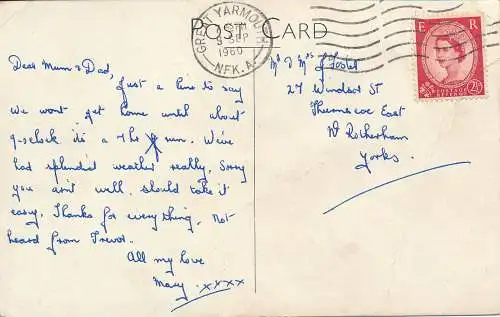 POST CARD
GREAT YARMOUTH
SEP
1960
NFK. A
E R
POSTAGE REVENUE
2½D
Dear Mum & Dad,
Just a line to say
we wont get home until about
9-o'clock its a 7hr run. We've
had splendid weather really. Sorry
you ain't well. should take it
easy. Thanks for everything. Not
heard from Trevor.
All my love
Mary. xxxx
Mr & Mrs J Foster
27 Windsor St
Thurnscoe East
Nr Rotherham
Yorks.